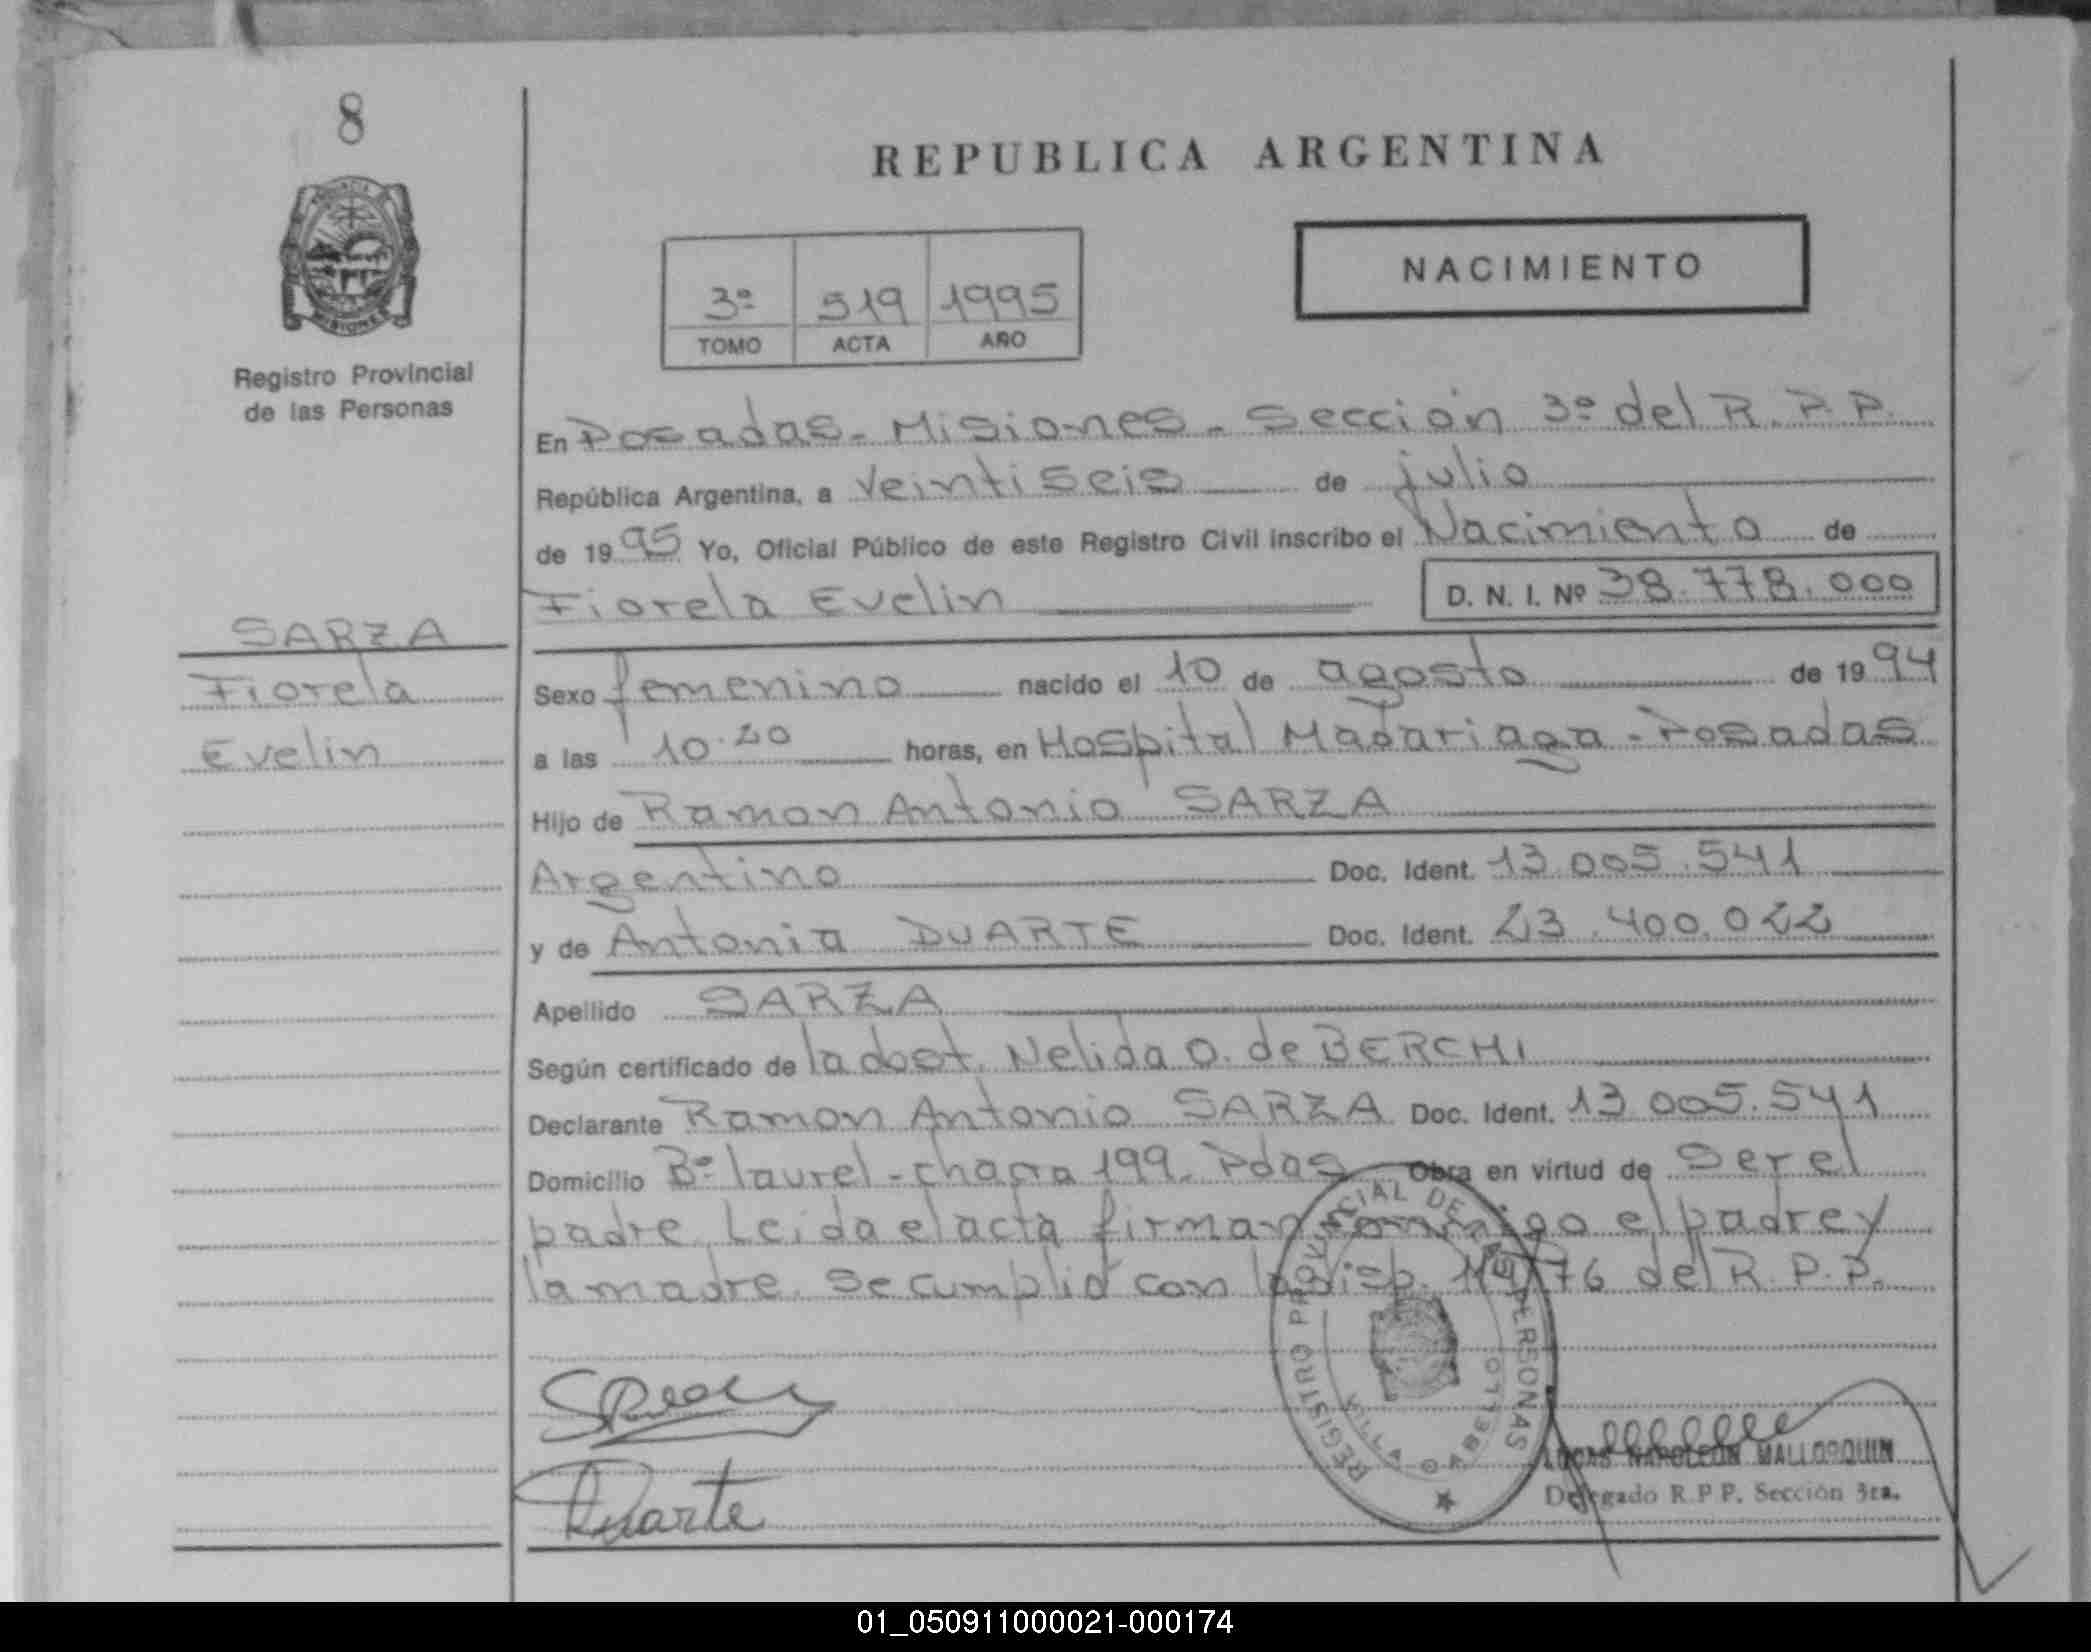 8
REPUBLICA ARGENTINA
NACIMIENTO
3º 519 1995
TOMO ACTA AÑO
Registro Provincial
de las Personas
En Posadas - Misiones - Sección 3º del R.P.P.
República Argentina, a Veintiseis de julio
de 1995 Yo, Oficial Público de este Registro Civil inscribo el Nacimiento de
Fiorela Evelin D. N. I. Nº 38.778.000
SARZA
Fiorela
Evelin
Sexo femenino nacido el 10 de agosto de 1994
a las 10.20 horas, en Hospital Madariaga - Posadas
Hijo de Ramon Antonio SARZA
Argentino Doc. Ident. 13.005.541
y de Antonia DUARTE Doc. Ident. 23.400.022
Apellido SARZA
Según certificado de la dost. Nelida O. de BERCHI
Declarante Ramon Antonio SARZA Doc. Ident. 13.005.541
Domicilio Bº laurel - chacra 199. Pdas Obra en virtud de Ser el
padre. Leida el acta firman conmigo el padre y
la madre. Se cumplió con la Disp. /76 del R.P.P.
REGISTRO PROVINCIAL DE LAS PERSONAS
VILLA CABELLO
Duarte
LUCAS NAPOLEON MALLORQUIN
Delegado R.P.P. Sección 3ra.
01_050911000021-000174